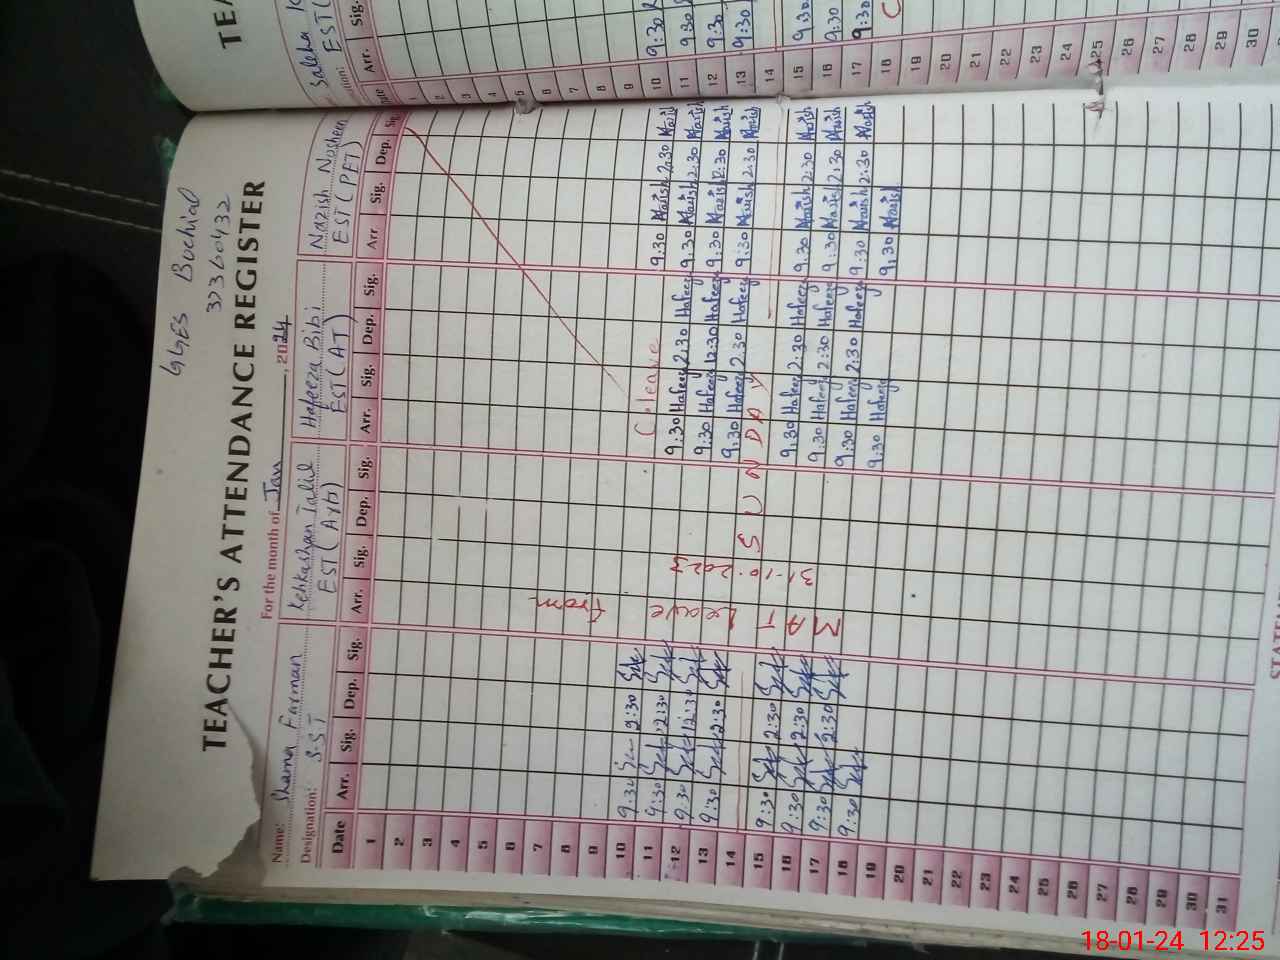 GGES Buchial
37360432
TEACHER'S ATTENDANCE REGISTER
For the month of Jan, 2024
Name: Shama Farman Kehkashan Jalil Hafeeza Bibi Nazish Nosheen
Designation: S.S.T EST(Arb) EST(AT) EST(PET)
Date Arr. Sig. Dep. Sig. Arr. Sig. Dep. Sig. Arr. Sig. Dep. Sig. Arr Sig. Dep. Sig.
1
2
3
4
5
6
7
8
9
10 9:30 2:30 C.leave 9:30 Nazish 2:30 Nazish
11 9:30 2:30 9:30 Hafeeza 2:30 Hafeeza 9:30 Nazish 2:30 Nazish
12 9:30 12:30 9:30 Hafeeza 12:30 Hafeeza 9:30 Nazish 12:30 Nazish
13 9:30 2:30 9:30 Hafeeza 2:30 Hafeeza 9:30 Nazish 2:30 Nazish
14 SUNDAY
15 9:30 2:30 9:30 Hafeeza 2:30 Hafeeza 9:30 Nazish 2:30 Nazish
16 9:30 2:30 9:30 Hafeeza 2:30 Hafeeza 9:30 Nazish 2:30 Nazish
17 9:30 2:30 9:30 Hafeeza 2:30 Hafeeza 9:30 Nazish 2:30 Nazish
18 9:30 9:30 Hafeeza 9:30 Nazish
19
20
21
22
23
24
25
26
27
28
29
30
31
MAT Leave from
31-10-2023
TEA
Saleha
EST(
Date Arr. Sig.
1
2
3
4
5
6
7
8
9
10 9:30
11 9:30
12 9:30
13 9:30
14
15 9:30
16 9:30
17 9:30
18 C
19
20
21
22
23
24
25
26
27
28
29
30
18-01-24 12:25